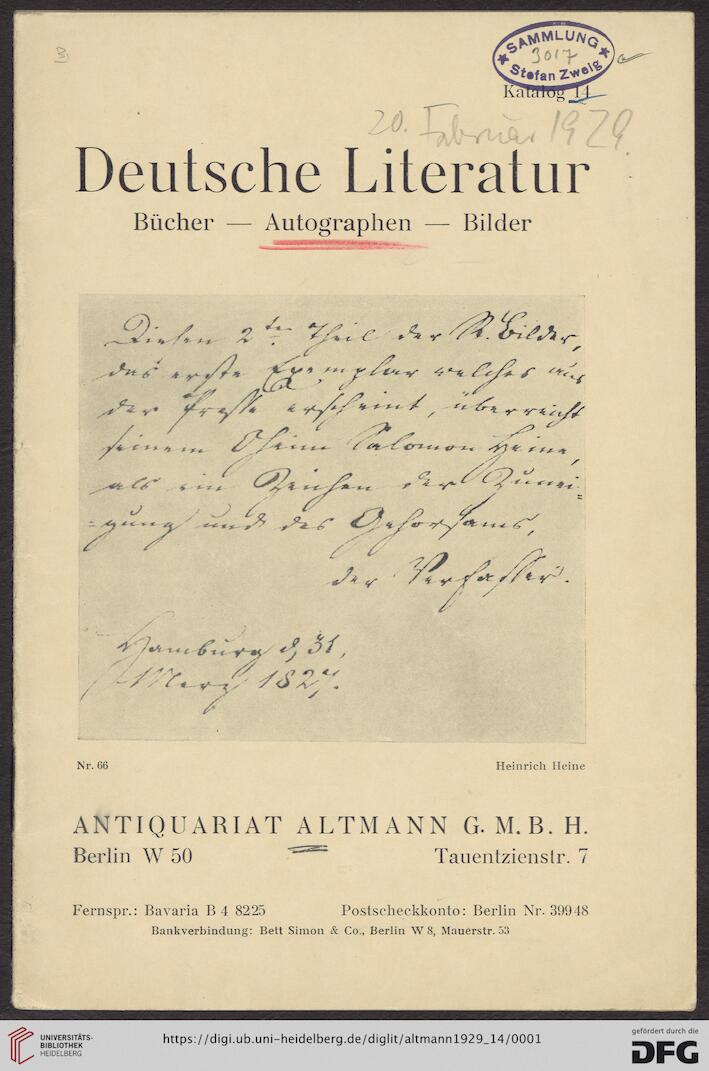 B.
SAMMLUNG
3017
Stefan Zweig
Katalog 14
20. Februar 1929.
Deutsche Literatur
Bücher — Autographen — Bilder
Diesen 2ten Theil der R. Bilder,
das erste Exemplar welches aus
der Presse erscheint, überreicht
seinem Oheim Salomon Heine,
als ein Zeichen der Zunei-
=gung und des Gehorsams,
der Verfasser.
Hamburg d, 31,
Merz 1827.
Nr. 66
Heinrich Heine
ANTIQUARIAT ALTMANN G. M. B. H.
Berlin W 50
Tauentzienstr. 7
Fernspr.: Bavaria B 4 8225
Postscheckkonto: Berlin Nr. 39948
Bankverbindung: Bett Simon & Co., Berlin W 8, Mauerstr. 53
UNIVERSITÄTS-
BIBLIOTHEK
HEIDELBERG
https://digi.ub.uni-heidelberg.de/diglit/altmann1929_14/0001
gefördert durch die
DFG